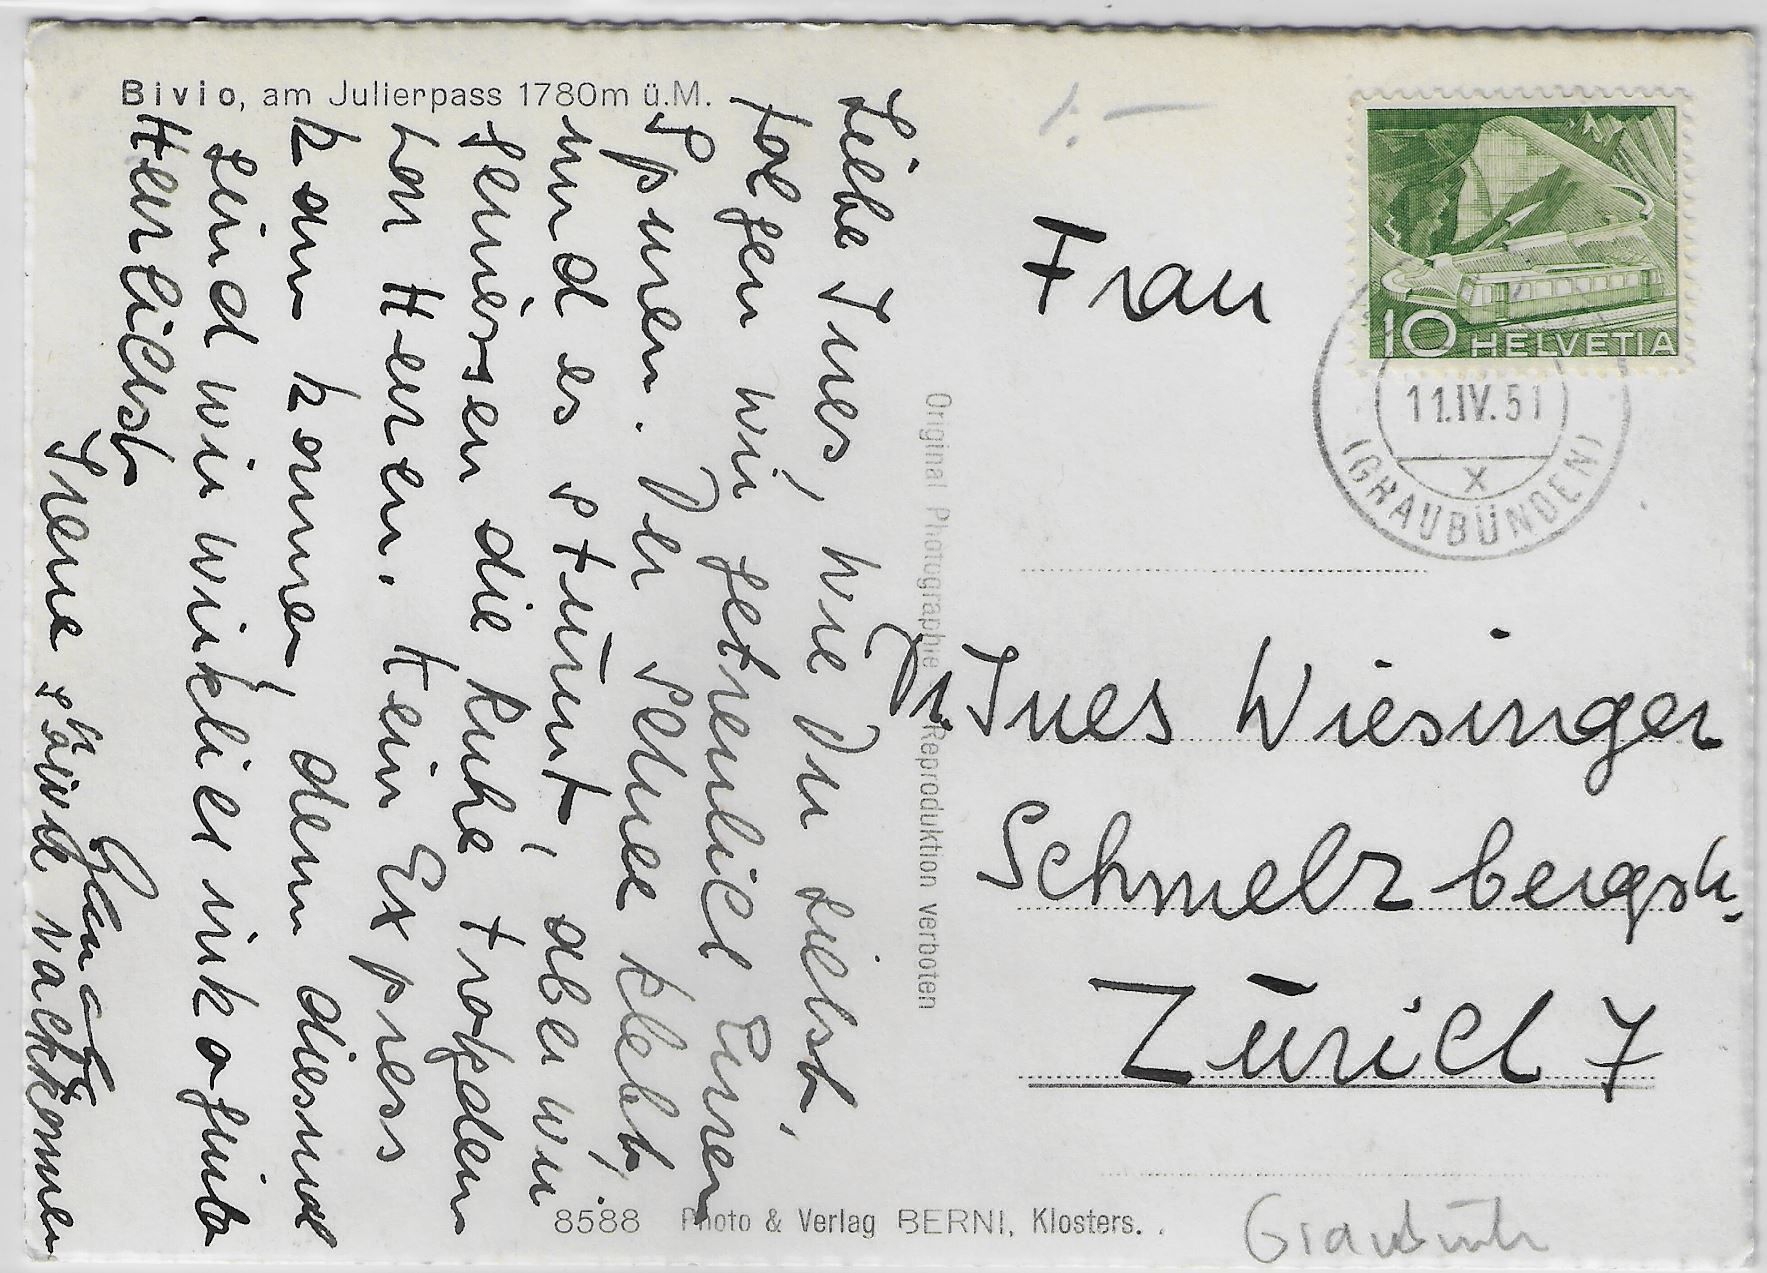 Bivio, am Julierpass 1780m ü.M.
Liebe Ines, wie Du siehst,
folgen wir getreulich Euren
Spuren. Der Schnee klebt,
und es stürmt, aber wir
geniessen die Ruhe trotzdem
von Herzen. Kein Express
kann kommen, denn diesmal
sind wir wirklich inkognito
Herzlichst
Irene
nachkommen
Original Photographie Reproduktion verboten
8588 Photo & Verlag BERNI, Klosters.
1.–
10 HELVETIA
11.IV.51
X
(GRAUBÜNDEN)
Frau
Dr Ines Wiesinger
Schmelzbergstr.
Zürich 7